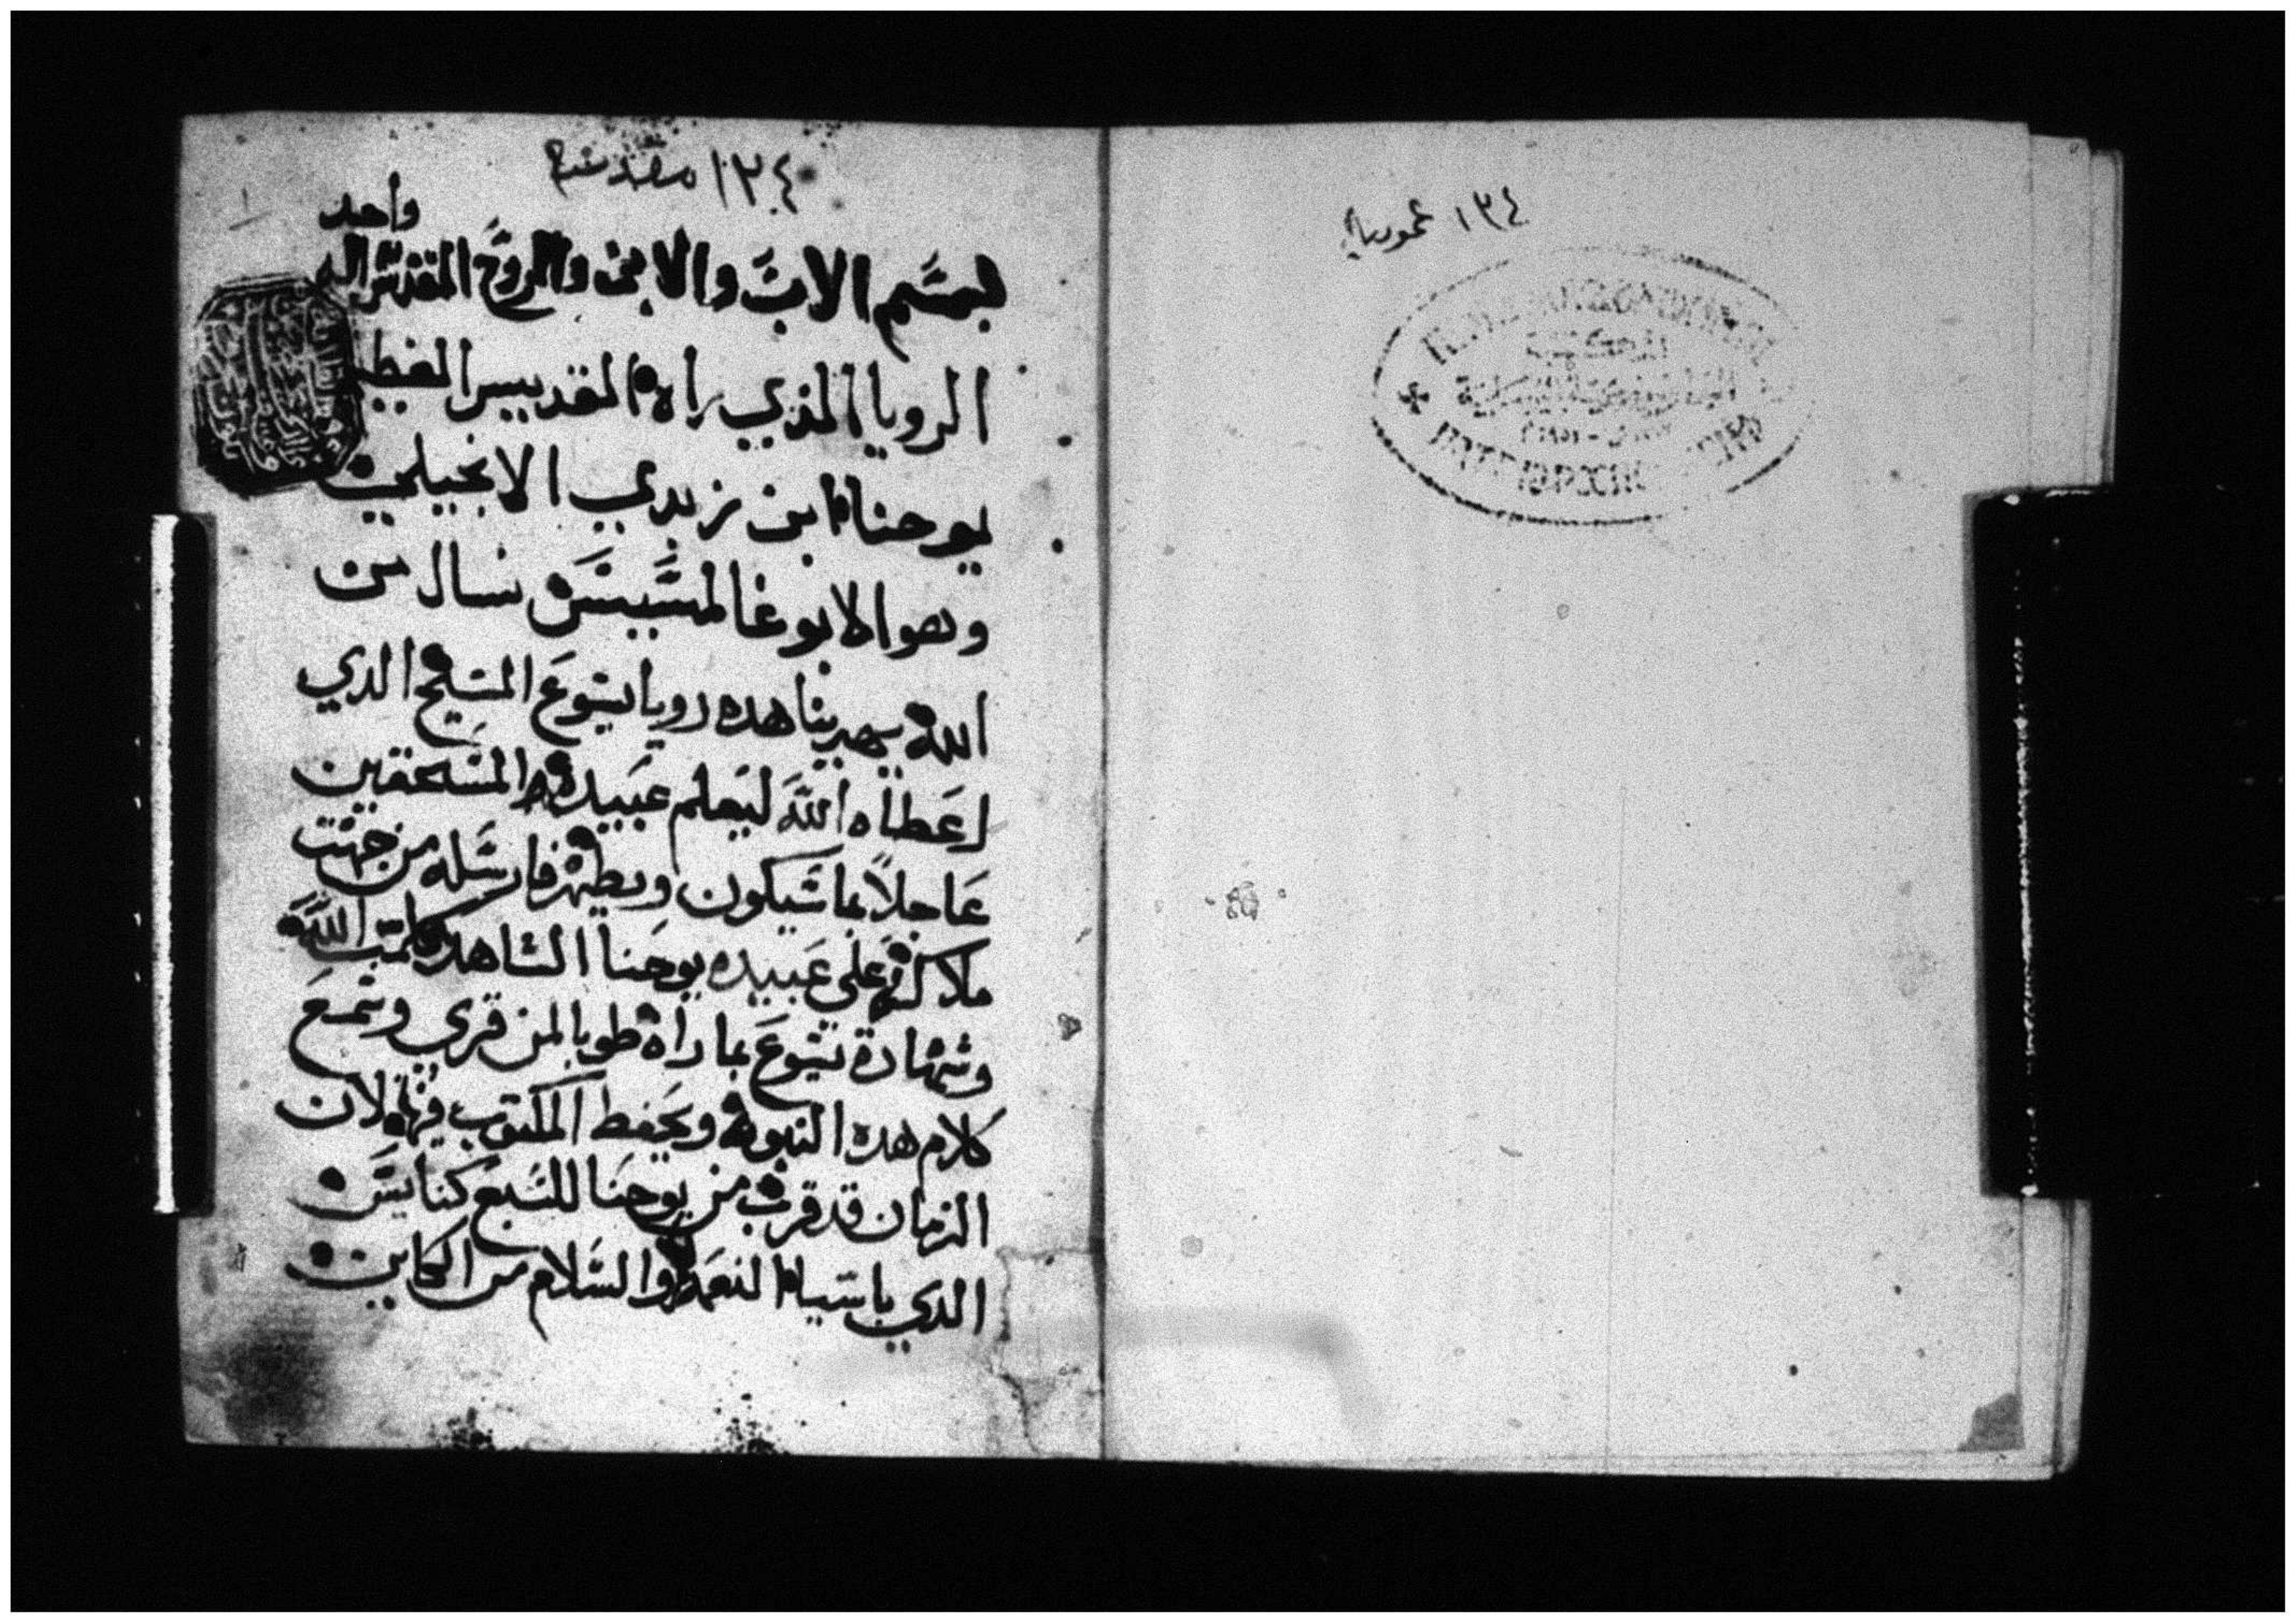 ١٣٤ عمومية
١٣٤ مقدسة
واحد
بسم الاب والابن والروح القدس اله
الرويا الذي راها القديس العظيم
يوحنا ابن زبدي الانجيلي
وهو الابوغالمسيس نسال من
الله يهدينا هده رويا يسوع المسيح الدي
اعطاه الله ليعلم عبيده المستحقين
عاجلاً بما سيكون ويظهر فارسله من جهت
ملاكه على عبيده يوحنا الشاهد كلمت الله
وشهادة يسوع بما راه طوبا لمن قرى وسمع
كلام هده النبوه ويحفظ المكتوب فيها لان
الزمان قد قرب من يوحنا للسبع كنايس
الدي باسيا النعمه والسلام من الكاين